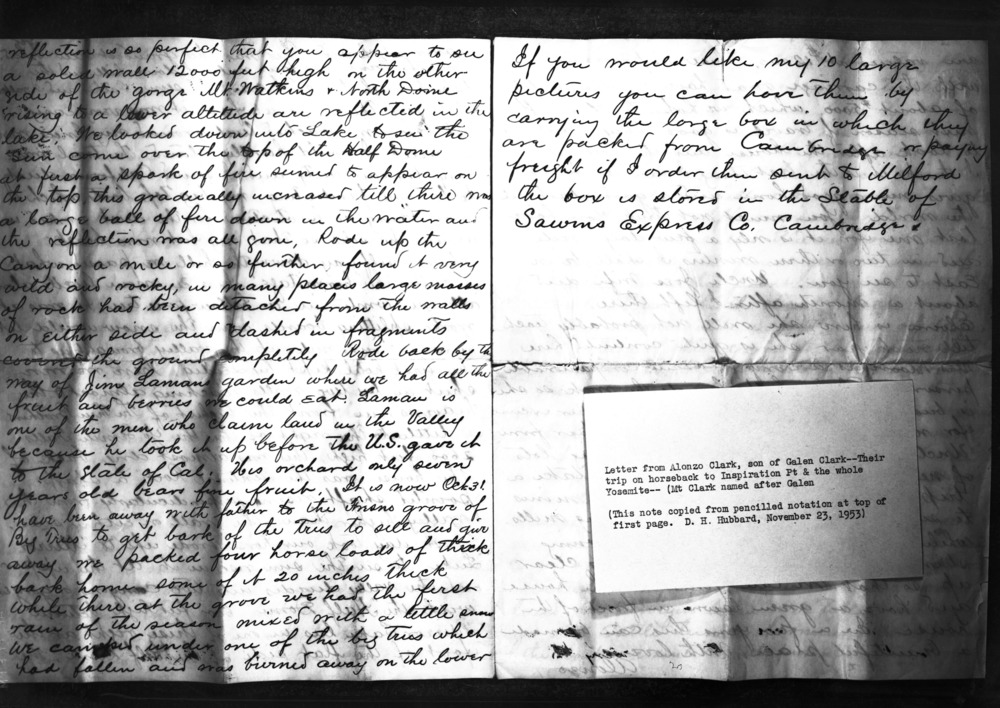 reflection is so perfect that you appear to see
a solid wall 12000 feet high on the other
side of the gorge Mt Watkins & North Dome
rising to a lower altitude are reflected in the
lake. We looked down into Lake to see the
Sun come over the top of the Half Dome
at first a spark of fire seemed to appear on
the top this gradually increased till there was
a large ball of fire down in the water and
the reflection was all gone. Rode up the
Canyon a mile or so further, found it very
wild and rocky, in many places large masses
of rock had been detached from the walls
on either side and dashed in fragments
covered the ground completely Rode back by the
way of Jim Lamans garden where we had all the
fruit and berries we could eat. Laman is
one of the men who claim land in the Valley
because he took it up before the U.S. gave it
to the State of Cal. His orchard only seven
years old bears fine fruit. It is now Oct. 31
have been away with father to the Fresno grove of
Big Trees to get bark of the trees to sell and give
away we packed four horse loads of thick
bark home some of it 20 inches thick
while there at the grove we had the first
rain of the season mixed with a little snow
we camped under one of the big trees which
had fallen and was burned away on the lower
If you would like my 10 large
pictures you can have them by
carrying the large box in which they
are packed from Cambridge or paying
freight if I order them sent to Milford
the box is stored in the Stable of
Sawins Express Co. Cambridge.
Letter from Alonzo Clark, son of Galen Clark--Their
trip on horseback to Inspiration Pt & the whole
Yosemite-- (Mt Clark named after Galen
(This note copied from pencilled notation at top of
first page. D. H. Hubbard, November 23, 1953)